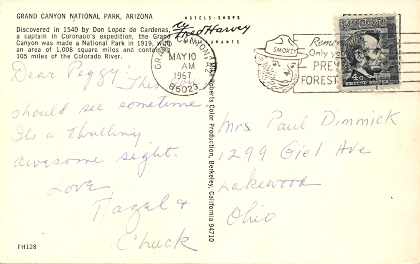 GRAND CANYON NATIONAL PARK, ARIZONA
Discovered in 1540 by Don Lopez de Cardenas,
a captain in Coronado's expedition, the Grand
Canyon was made a National Park in 1919, with
an area of 1,008 square miles and containing
105 miles of the Colorado River.
HOTELS · SHOPS
by Fred Harvey
RESTAURANTS
GRAND CANYON, ARIZ.
MAY 10
AM
1967
86023
SMOKEY
Only you
PREV
FOREST
4c
Dear Peggy: This
should see sometime.
Its a thrilling
awesome sight.
Love
Hazel &
Chuck
Mrs Paul Dimmick
1299 Giel Ave
Lakewood
Ohio
Mike Roberts Color Production, Berkeley, California 94710
FH128